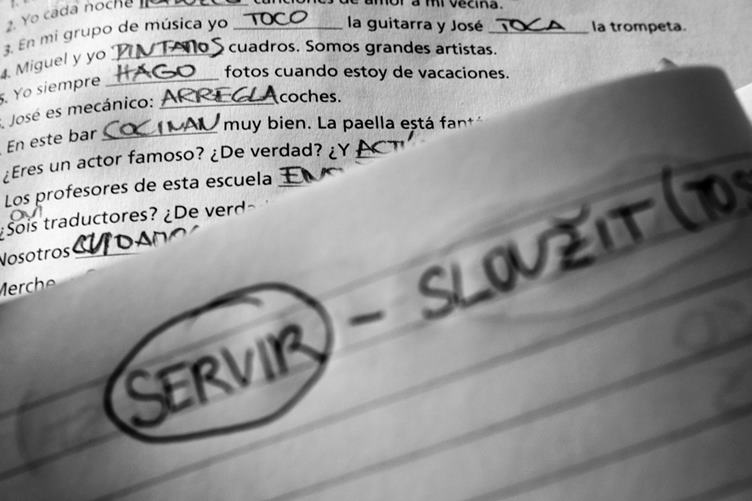 2. Yo cada noche canciones de amor a mi vecina.
3. En mi grupo de música yo TOCO la guitarra y José TOCA la trompeta.
4. Miguel y yo PINTAMOS cuadros. Somos grandes artistas.
5. Yo siempre HAGO fotos cuando estoy de vacaciones.
. José es mecánico: ARREGLA coches.
En este bar COCINAN muy bien. La paella está fant
¿Eres un actor famoso? ¿De verdad? ¿Y ACTÚ
Los profesores de esta escuela ENS
¿Sois traductores? ¿De verd
Nosotros CUIDAMOS
Merche
SERVIR - SLOUŽIT (TO